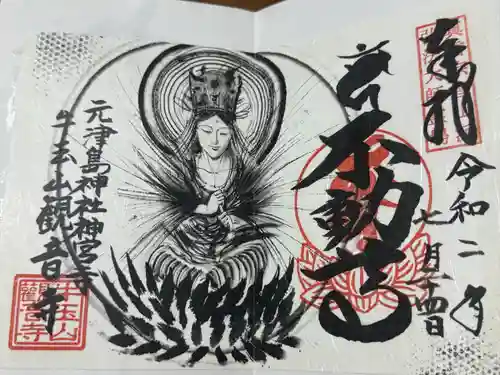 奉拝
令和二年
七月二十四日
不動尊
元津島神社神宮寺
牛玉山観音寺
牛玉山
觀音寺